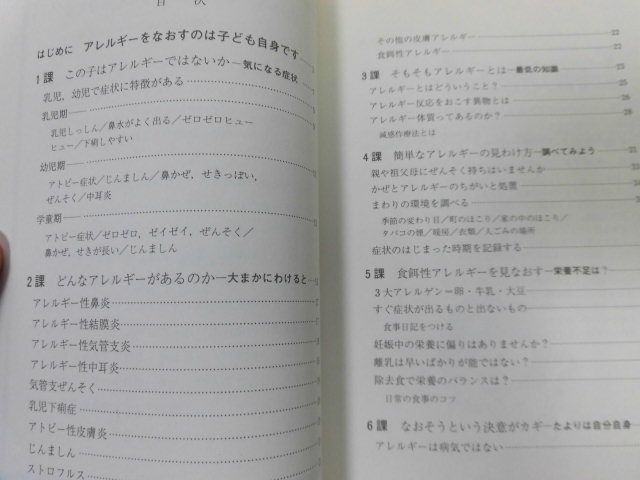 目次
はじめに アレルギーをなおすのは子ども自身です
1課 この子はアレルギーではないか―気になる症状
乳児,幼児で症状に特徴がある
乳児期
乳児しっしん/鼻水がよく出る/ゼロゼロヒュー
ヒュー/下痢しやすい
幼児期
アトピー症状/じんましん/鼻かぜ,せきっぽい,
ぜんそく/中耳炎
学童期
アトピー症状/ゼロゼロ,ゼイゼイ,ぜんそく/
鼻かぜ,せきが長い/じんましん
2課 どんなアレルギーがあるのか―大まかにわけると
アレルギー性鼻炎
アレルギー性結膜炎
アレルギー性気管支炎
アレルギー性中耳炎
気管支ぜんそく
乳児下痢症
アトピー性皮膚炎
じんましん
ストロフルス
その他の皮膚アレルギー 22
食餌性アレルギー 22
3課 そもそもアレルギーとは―最低の知識 23
アレルギーとはどういうこと? 25
アレルギー反応をおこす異物とは 26
アレルギー体質ってあるのか? 28
減感作療法とは
4課 簡単なアレルギーの見わけ方―調べてみよう
親や祖父母にぜんそく持ちはいませんか
かぜとアレルギーのちがいと処置
まわりの環境を調べる
季節の変わり目/町のほこり/家の中のほこり/
タバコの煙/暖房/衣類/人ごみの場所
症状のはじまった時期を記録する
5課 食餌性アレルギーを見なおす―栄養不足は?
3大アレルゲン=卵・牛乳・大豆
すぐ症状が出るものと出ないもの
食事日記をつける
妊娠中の栄養に偏りはありませんか?
離乳は早いばかりが能ではない?
除去食で栄養のバランスは?
日常の食事のコツ
6課 なおそうという決意がカギ―たよりは自分自身
アレルギーは病気ではない